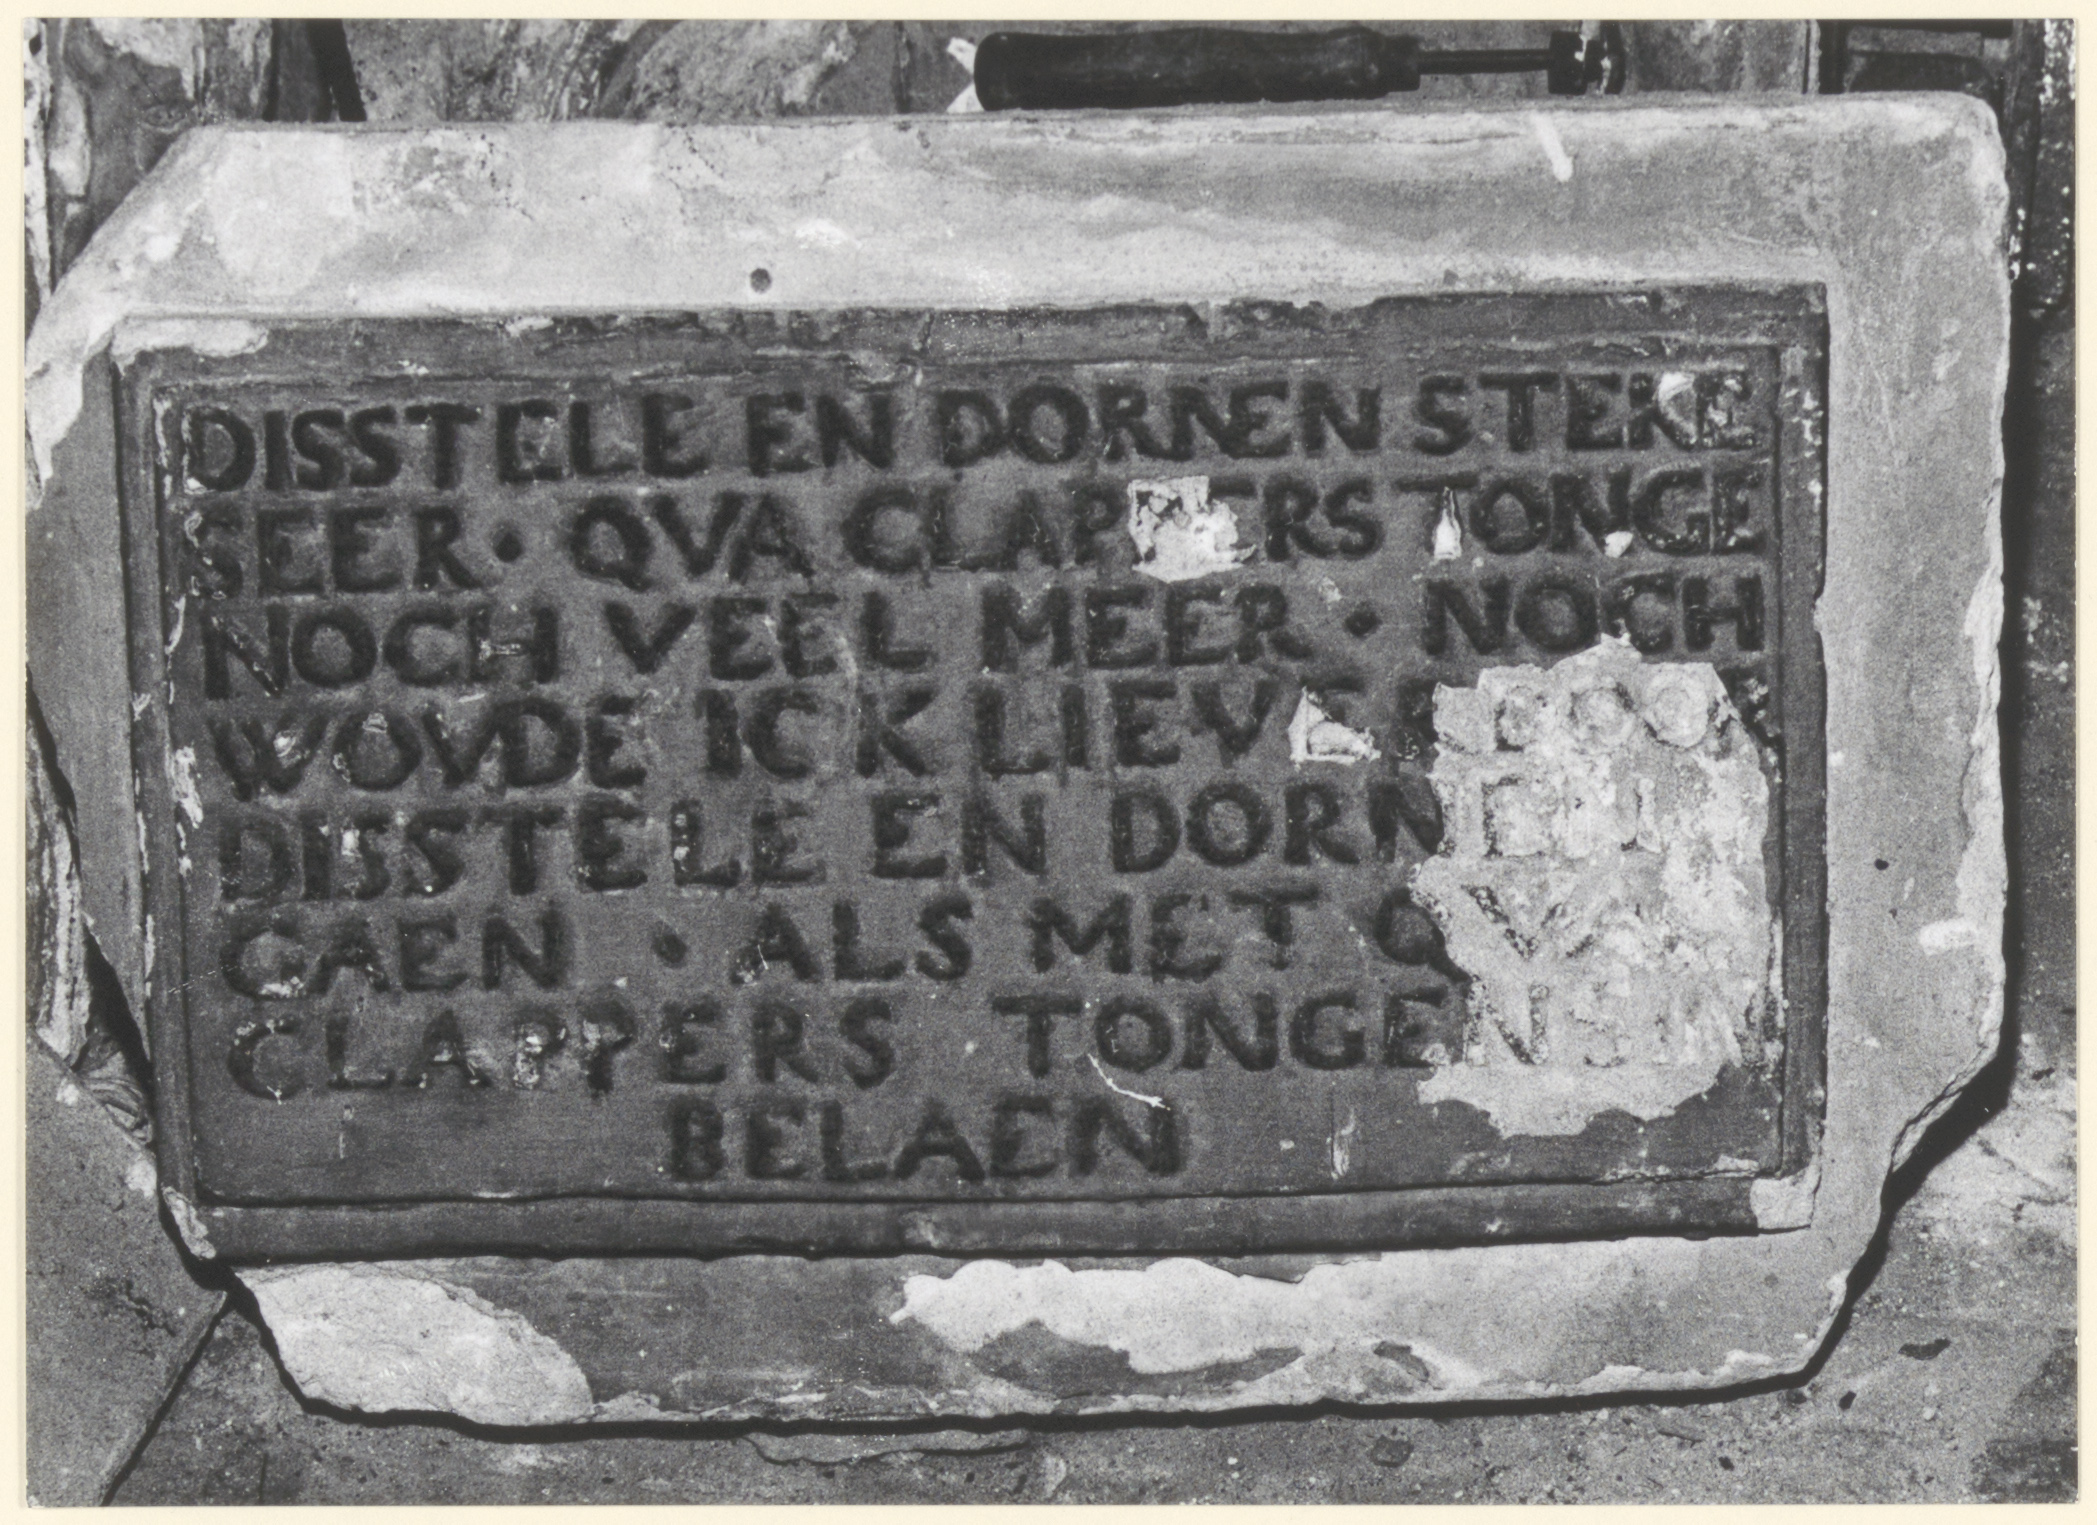 DISSTELE EN DORNEN STEKE
SEER · QVA CLAPPERS TONGE
NOCH VEEL MEER · NOCH
WOVDE ICK LIEVER DOOR
DISSTELE EN DORNEN
GAEN · ALS MET QVA
CLAPPERS TONGEN SIN
BELAEN